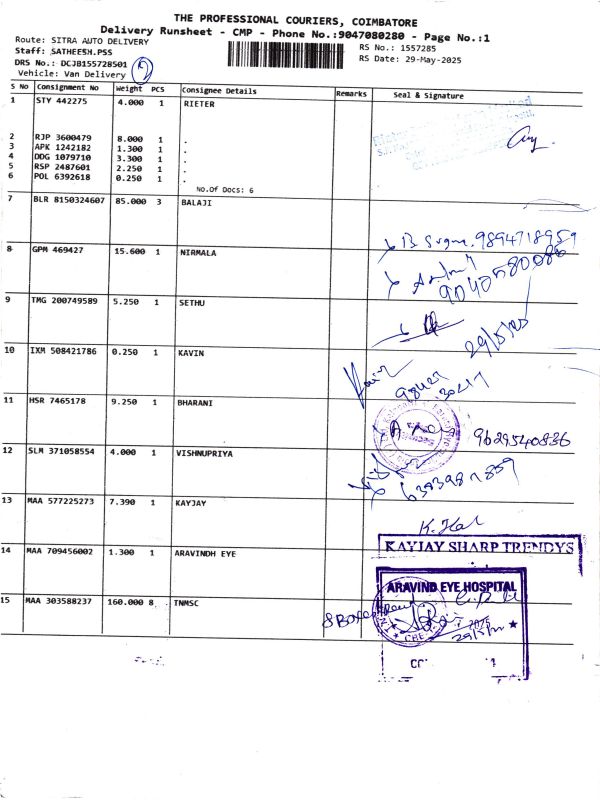 THE PROFESSIONAL COURIERS, COIMBATORE
Delivery Runsheet - CMP - Phone No.:9047080280 - Page No.:1
Route: SITRA AUTO DELIVERY
RS No.: 1557285
Staff: SATHEESH.PSS
RS Date: 29-May-2025
DRS No.: DCJB155728501
Vehicle: Van Delivery
S No Consignment No Weight PCS Consignee Details Remarks Seal & Signature
1 STY 442275 4.000 1 RIETER
2 RJP 3600479 8.000 1 .
3 APK 1242182 1.300 1 .
4 DDG 1079710 3.300 1 .
5 RSP 2487601 2.250 1 .
6 POL 6392618 0.250 1 .
No.Of Docs: 6
7 BLR 8150324607 85.000 3 BALAJI
9894718959
8 GPM 469427 15.600 1 NIRMALA
9 TMG 200749589 5.250 1 SETHU
10 IXM 508421786 0.250 1 KAVIN
11 HSR 7465178 9.250 1 BHARANI
9629540836
12 SLM 371058554 4.000 1 VISHNUPRIYA
13 MAA 577225273 7.390 1 KAYJAY
KAYJAY SHARP TRENDYS
14 MAA 709456002 1.300 1 ARAVINDH EYE
ARAVIND EYE HOSPITAL
15 MAA 303588237 160.000 8 TNMSC